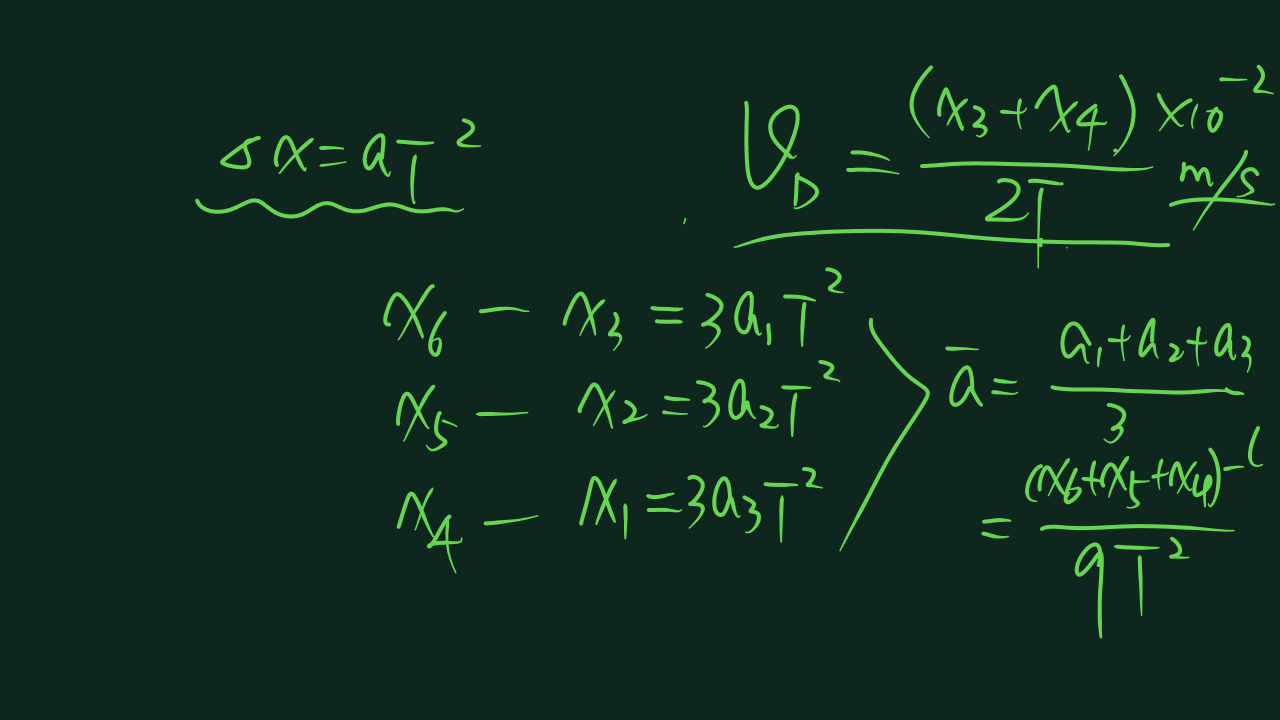 Δx=aT²
v_D = (x₃+x₄)×10⁻² / 2T m/s
x₆ − x₃ = 3a₁T²
x₅ − x₂ = 3a₂T²
x₄ − x₁ = 3a₃T²
ā = a₁+a₂+a₃ / 3
= (x₆+x₅+x₄)−( / 9T²